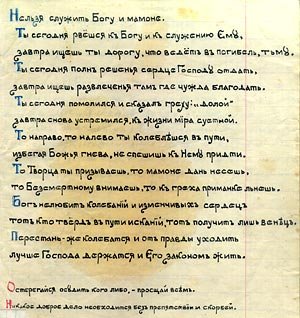 Нельзя служить Богу и мамоне.
Ты сегодня рвёшся къ Богу и къ служению Ему,
завтра ищешь ты дорогу, что ведётъ въ погибель, тьму.
Ты сегодня полнъ решенья сердце Господу отдать,
завтра ищешь развлеченья тамъ где чужда благодать.
Ты сегодня помолился и сказалъ греху:.. „долой"
завтра снова устремился къ жизни мiра суетной.
То направо, то налево ты колеблешься въ пути,
избегая Божья гнева, не спешишь къ Нему придти.
То Творца ты призываешь, то мамоне дань несешь,
то Безсмертному внимаешь, то къ греха приманке льнешь.
Богъ не любитъ колебанiй и изменчивыхъ сердецъ
тотъ кто твёрдъ въ пути исканiй, тотъ получитъ лишь венецъ.
Перестань-же колебатся и отъ правды уходить
лучше Господа держатся и Его закономъ жить.
Остерегайся осудить кого либо, - прощай всемъ.
Никакое доброе дело необходится безъ препятствiй и скорбей.